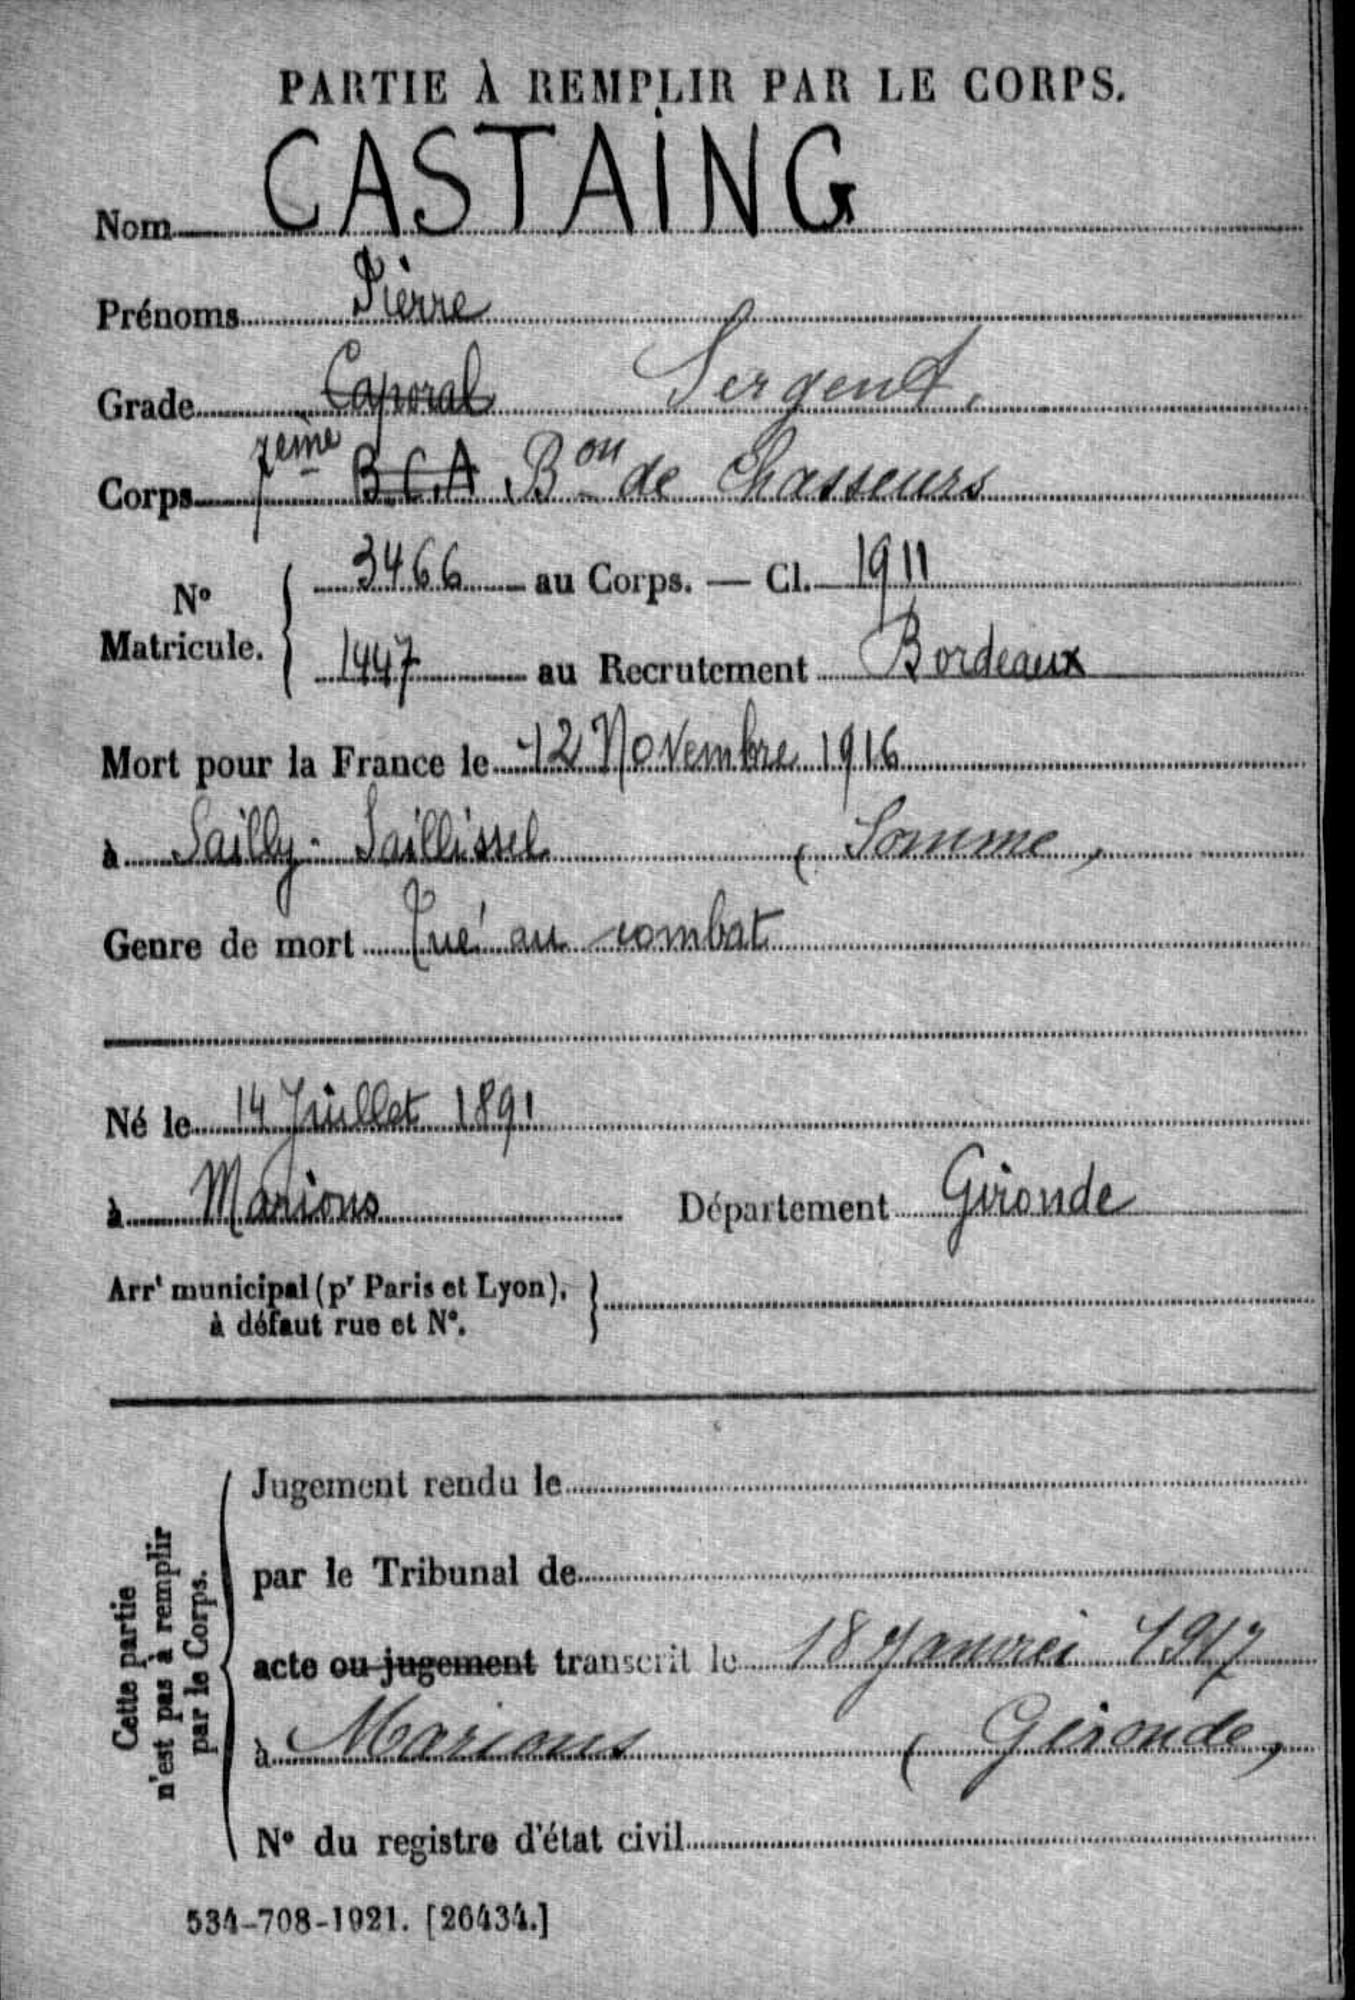 PARTIE À REMPLIR PAR LE CORPS.
Nom CASTAING
Prénoms Pierre
Grade Caporal Sergent,
Corps 7ème B.C.A Bon de Chasseurs
N° Matricule. { 3466 au Corps. — Cl. 1911
1447 au Recrutement Bordeaux
Mort pour la France le 12 Novembre 1916
à Sailly-Saillissel (Somme)
Genre de mort Tué au combat
Né le 14 Juillet 1891
à Marions Département Gironde
Arrt municipal (pr Paris et Lyon),
à défaut rue et N°.
Cette partie
n'est pas à remplir
par le Corps.
Jugement rendu le
par le Tribunal de
acte ou jugement transcrit le 18 Janvei 1917
à Marions (Gironde)
N° du registre d'état civil
534-708-1921. [26434.]